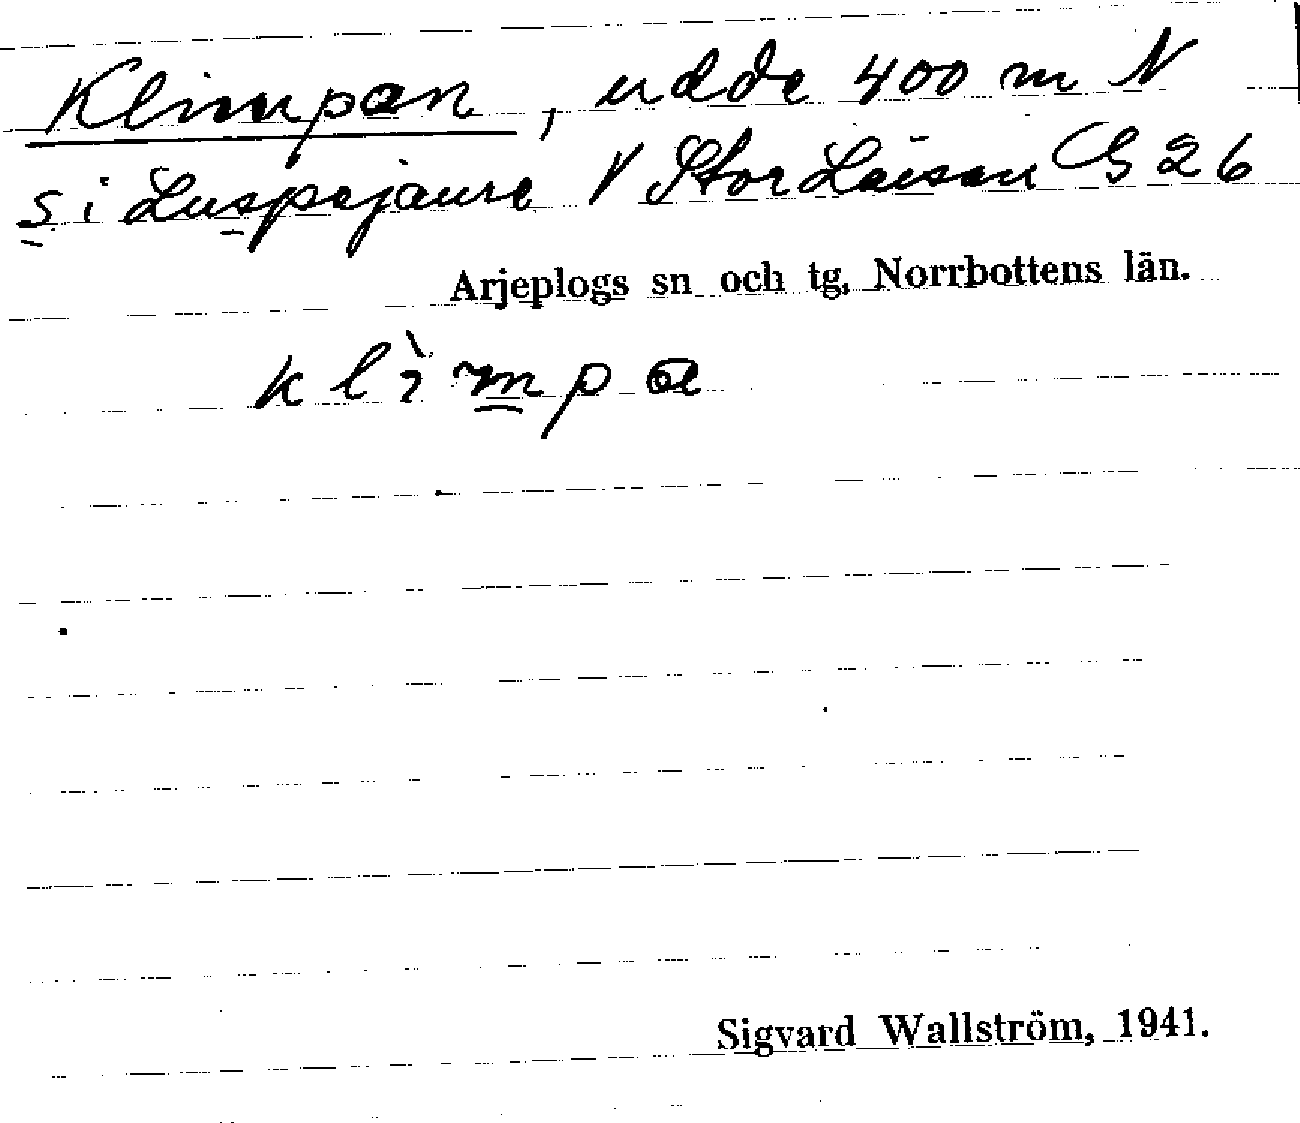 Klimpan, udde 400 m N
s i Luspajaure V Stor Laisan G 26
Arjeplogs sn och tg, Norrbottens län.
klìmpa
Sigvard Wallström, 1941.